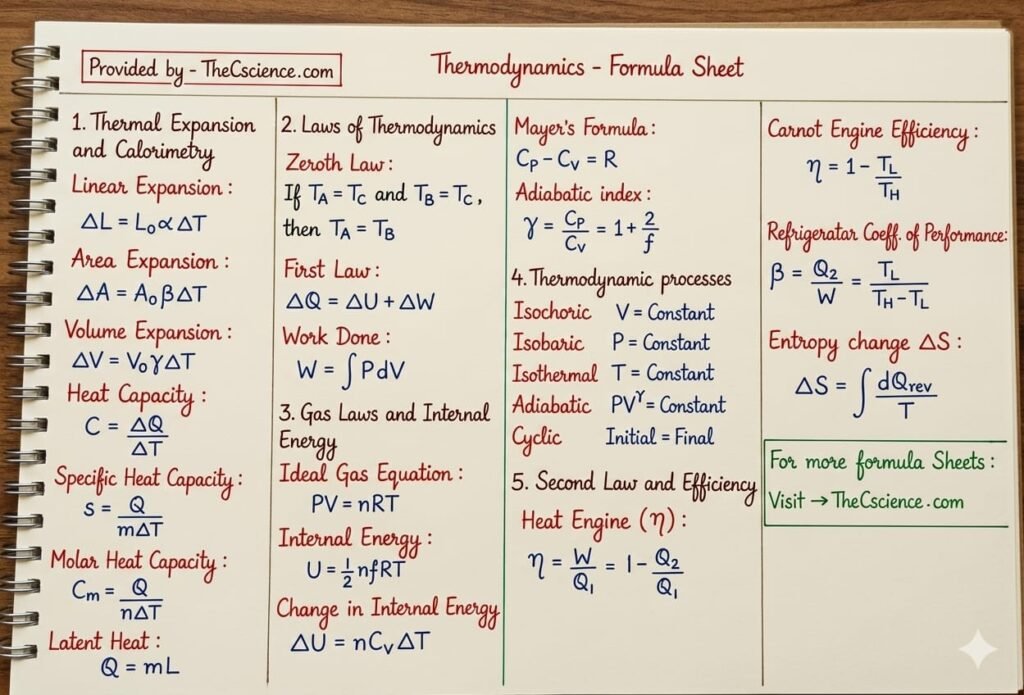 Provided by - TheCscience.com
Thermodynamics - Formula Sheet
1. Thermal Expansion
and Calorimetry
Linear Expansion :
ΔL = L₀ α ΔT
Area Expansion :
ΔA = A₀ β ΔT
Volume Expansion :
ΔV = V₀ γ ΔT
Heat Capacity :
C = ΔQ/ΔT
Specific Heat Capacity :
s = Q/mΔT
Molar Heat Capacity :
Cₘ = Q/nΔT
Latent Heat :
Q = mL
2. Laws of Thermodynamics
Zeroth Law :
If T_A = T_C and T_B = T_C ,
then T_A = T_B
First Law :
ΔQ = ΔU + ΔW
Work Done :
W = ∫ P dV
3. Gas Laws and Internal
Energy
Ideal Gas Equation :
PV = nRT
Internal Energy :
U = 1/2 nfRT
Change in Internal Energy
ΔU = nC_V ΔT
Mayer's Formula :
C_P - C_V = R
Adiabatic index :
γ = C_P/C_V = 1 + 2/f
4. Thermodynamic processes
Isochoric V = Constant
Isobaric P = Constant
Isothermal T = Constant
Adiabatic PV^γ = Constant
Cyclic Initial = Final
5. Second Law and Efficiency
Heat Engine (η) :
η = W/Q₁ = 1 - Q₂/Q₁
Carnot Engine Efficiency :
η = 1 - T_L/T_H
Refrigeratar Coeff. of Performance:
β = Q₂/W = T_L/(T_H - T_L)
Entropy change ΔS :
ΔS = ∫ dQ_rev/T
For more formula Sheets :
Visit → TheCscience.com